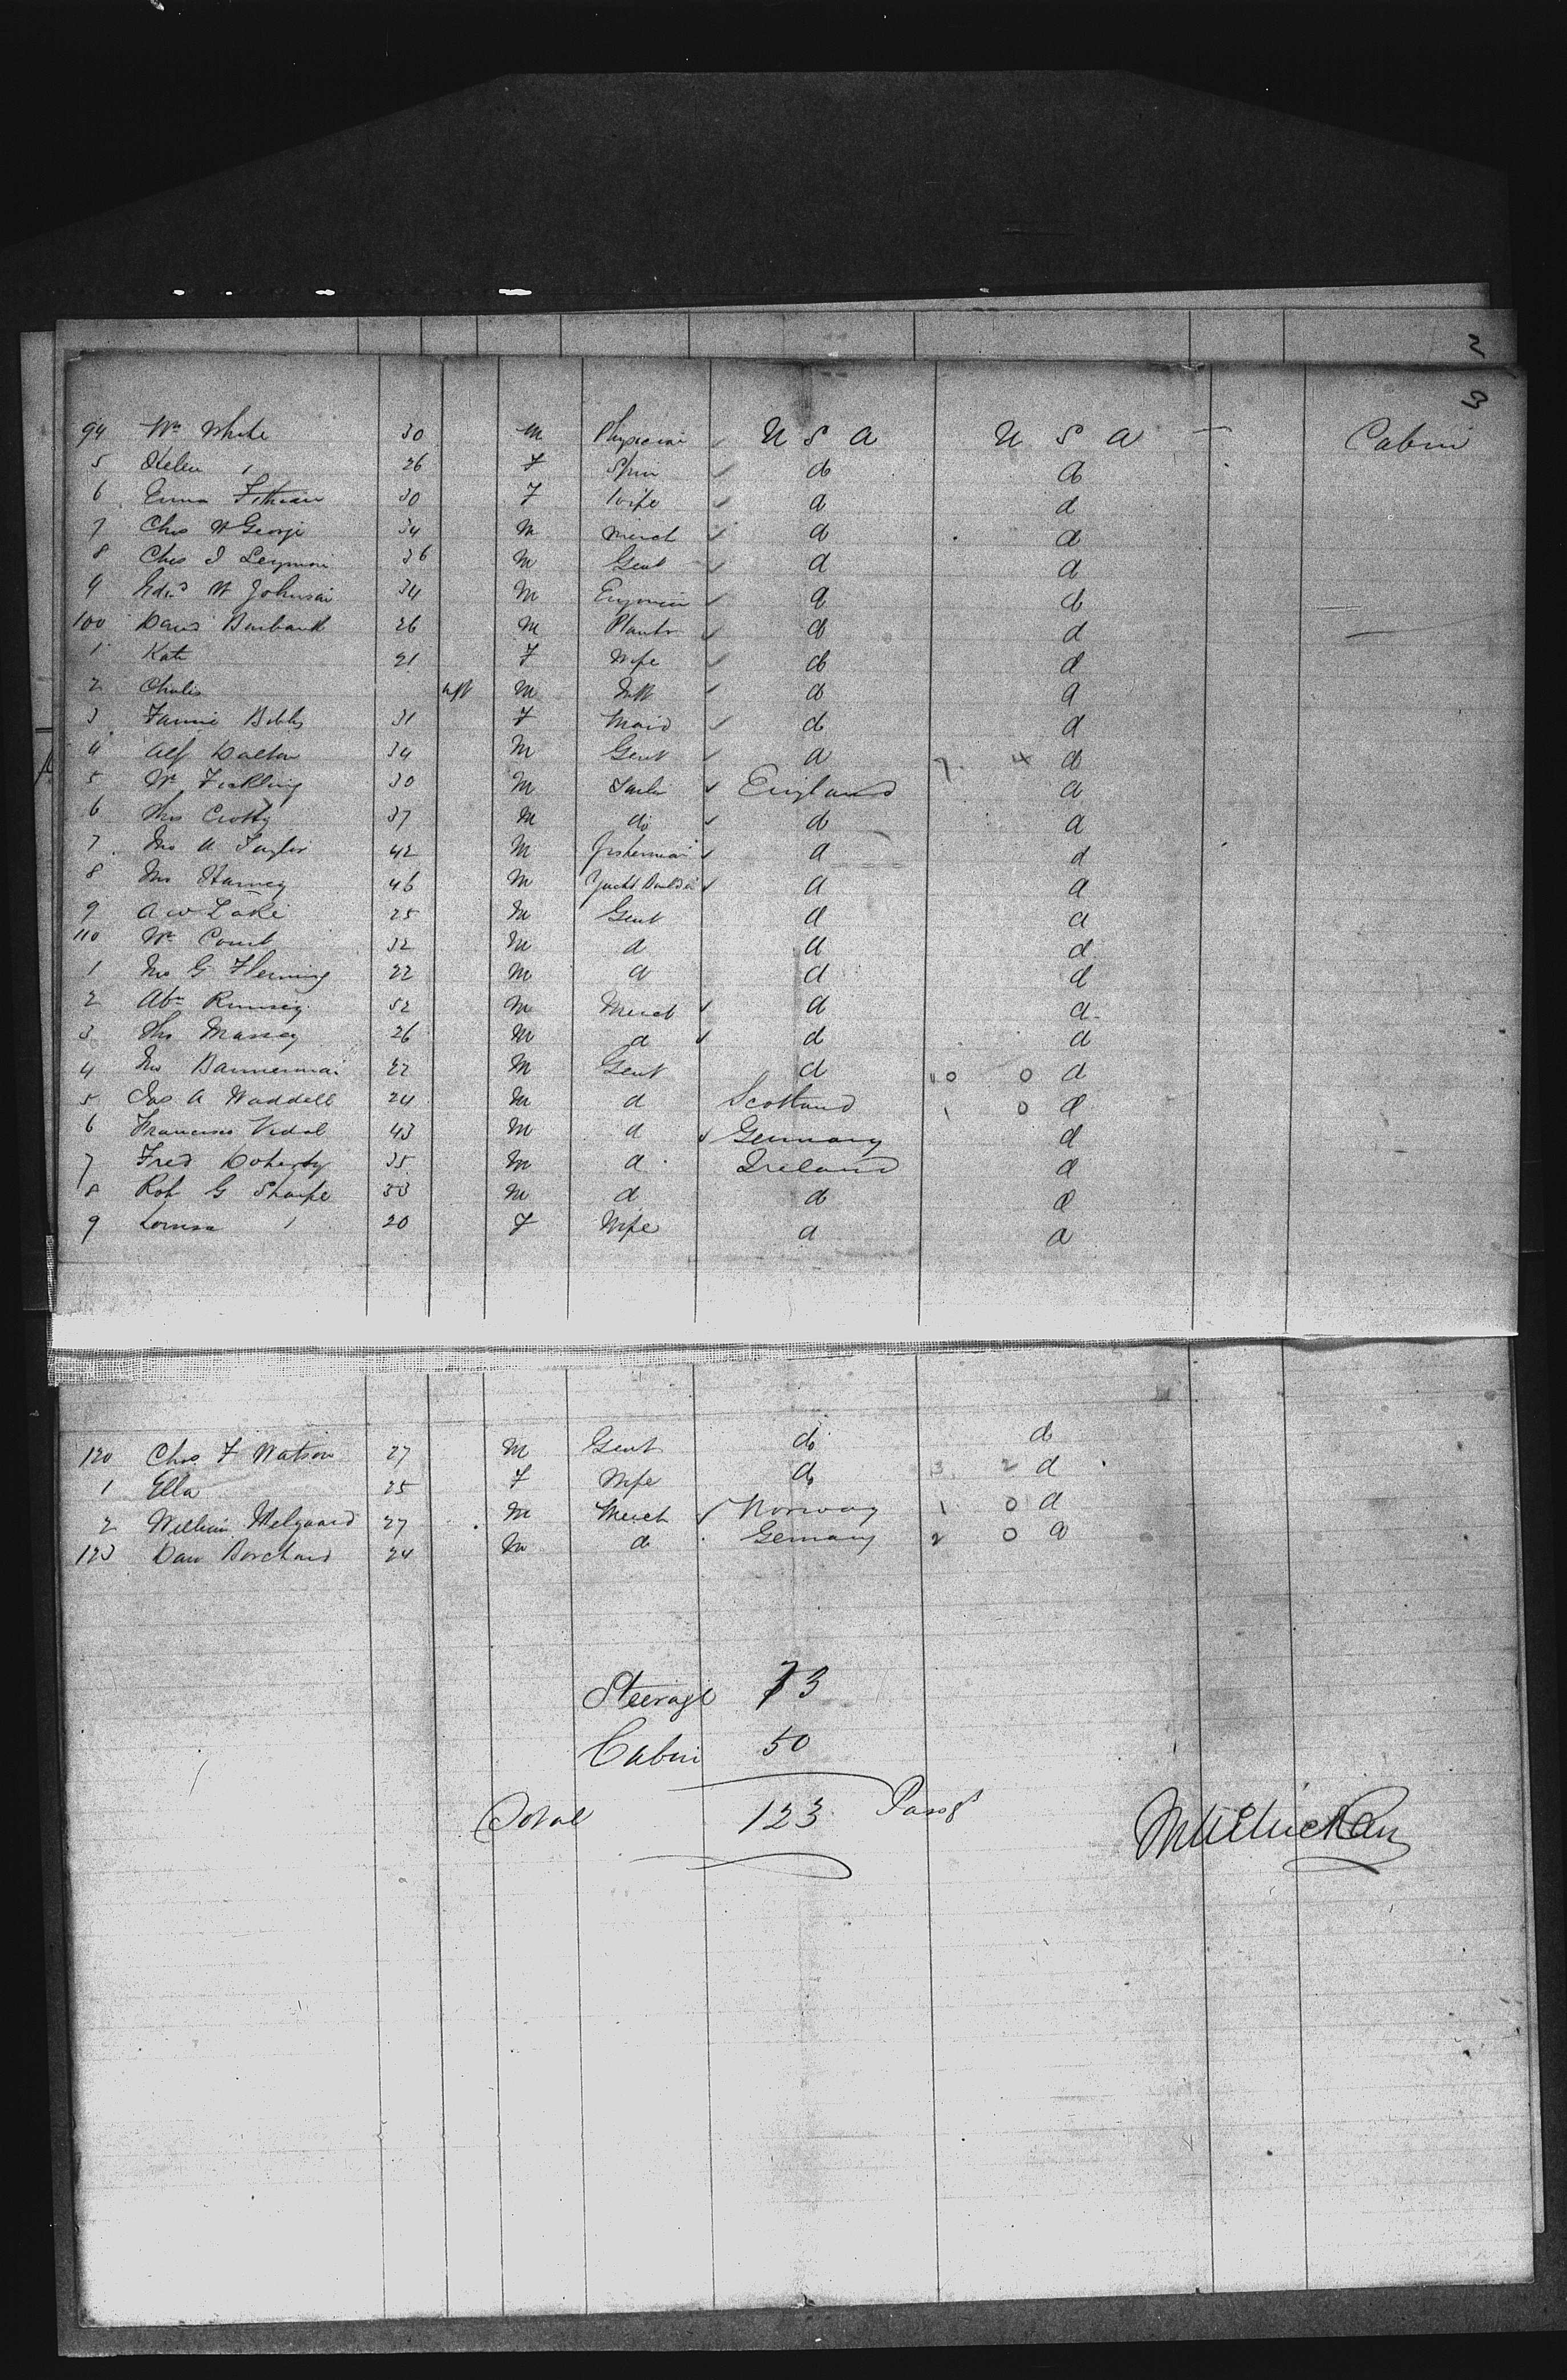 2
3
94 Wm White 30 M Physician U S A U S A — Cabin
5 Helen " 26 F Spin do do
6 Emma Fithian 30 F Wife d d
7 Chas W George 34 M Merch d d
8 Chas I Seymour 36 M Gent d d
9 Edwd W Johnson 34 M Engineer d d
100 David Burbank 26 M Plantr d d
1 Kate 21 F Wife do d
2 Charles M Inft d d
3 Fannie Bibby 31 F Maid do d
4 Alf Dalton 34 M Gent d 7 4 d
5 Wm Fickling 30 M England d
6 Ths Crotty 37 M do do d
7 Jno A Taylor 42 M fisherman d d
8 Jno Harvey 46 M Yacht Builder d d
9 A W Lake 25 M Gent d d
110 Wm Court 32 M d d d
1 Jno G Fleming 22 M d d d
2 Abm Rumsey 52 M Merch d d
3 Ths Massey 26 M d d d
4 Jno Bannerman 22 M Gent d 10 0 d
5 Jas A Waddell 24 M d Scotland 1 0 d
6 Francisco Vidal 43 M d Germany d
7 Fred Doherty 35 M d Ireland d
8 Rob G Sharpe 33 M d d d
9 Louisa " 20 F Wife d d
120 Chas F Watson 27 M Gent do do
1 Ella 25 F Wife do 3 2 d
2 William Melgaard 27 M Merch Norway 1 0 d
123 Dav Borchard 24 M d Germany 2 0 d
Steerage 73
Cabin 50
Total 123 Passgs